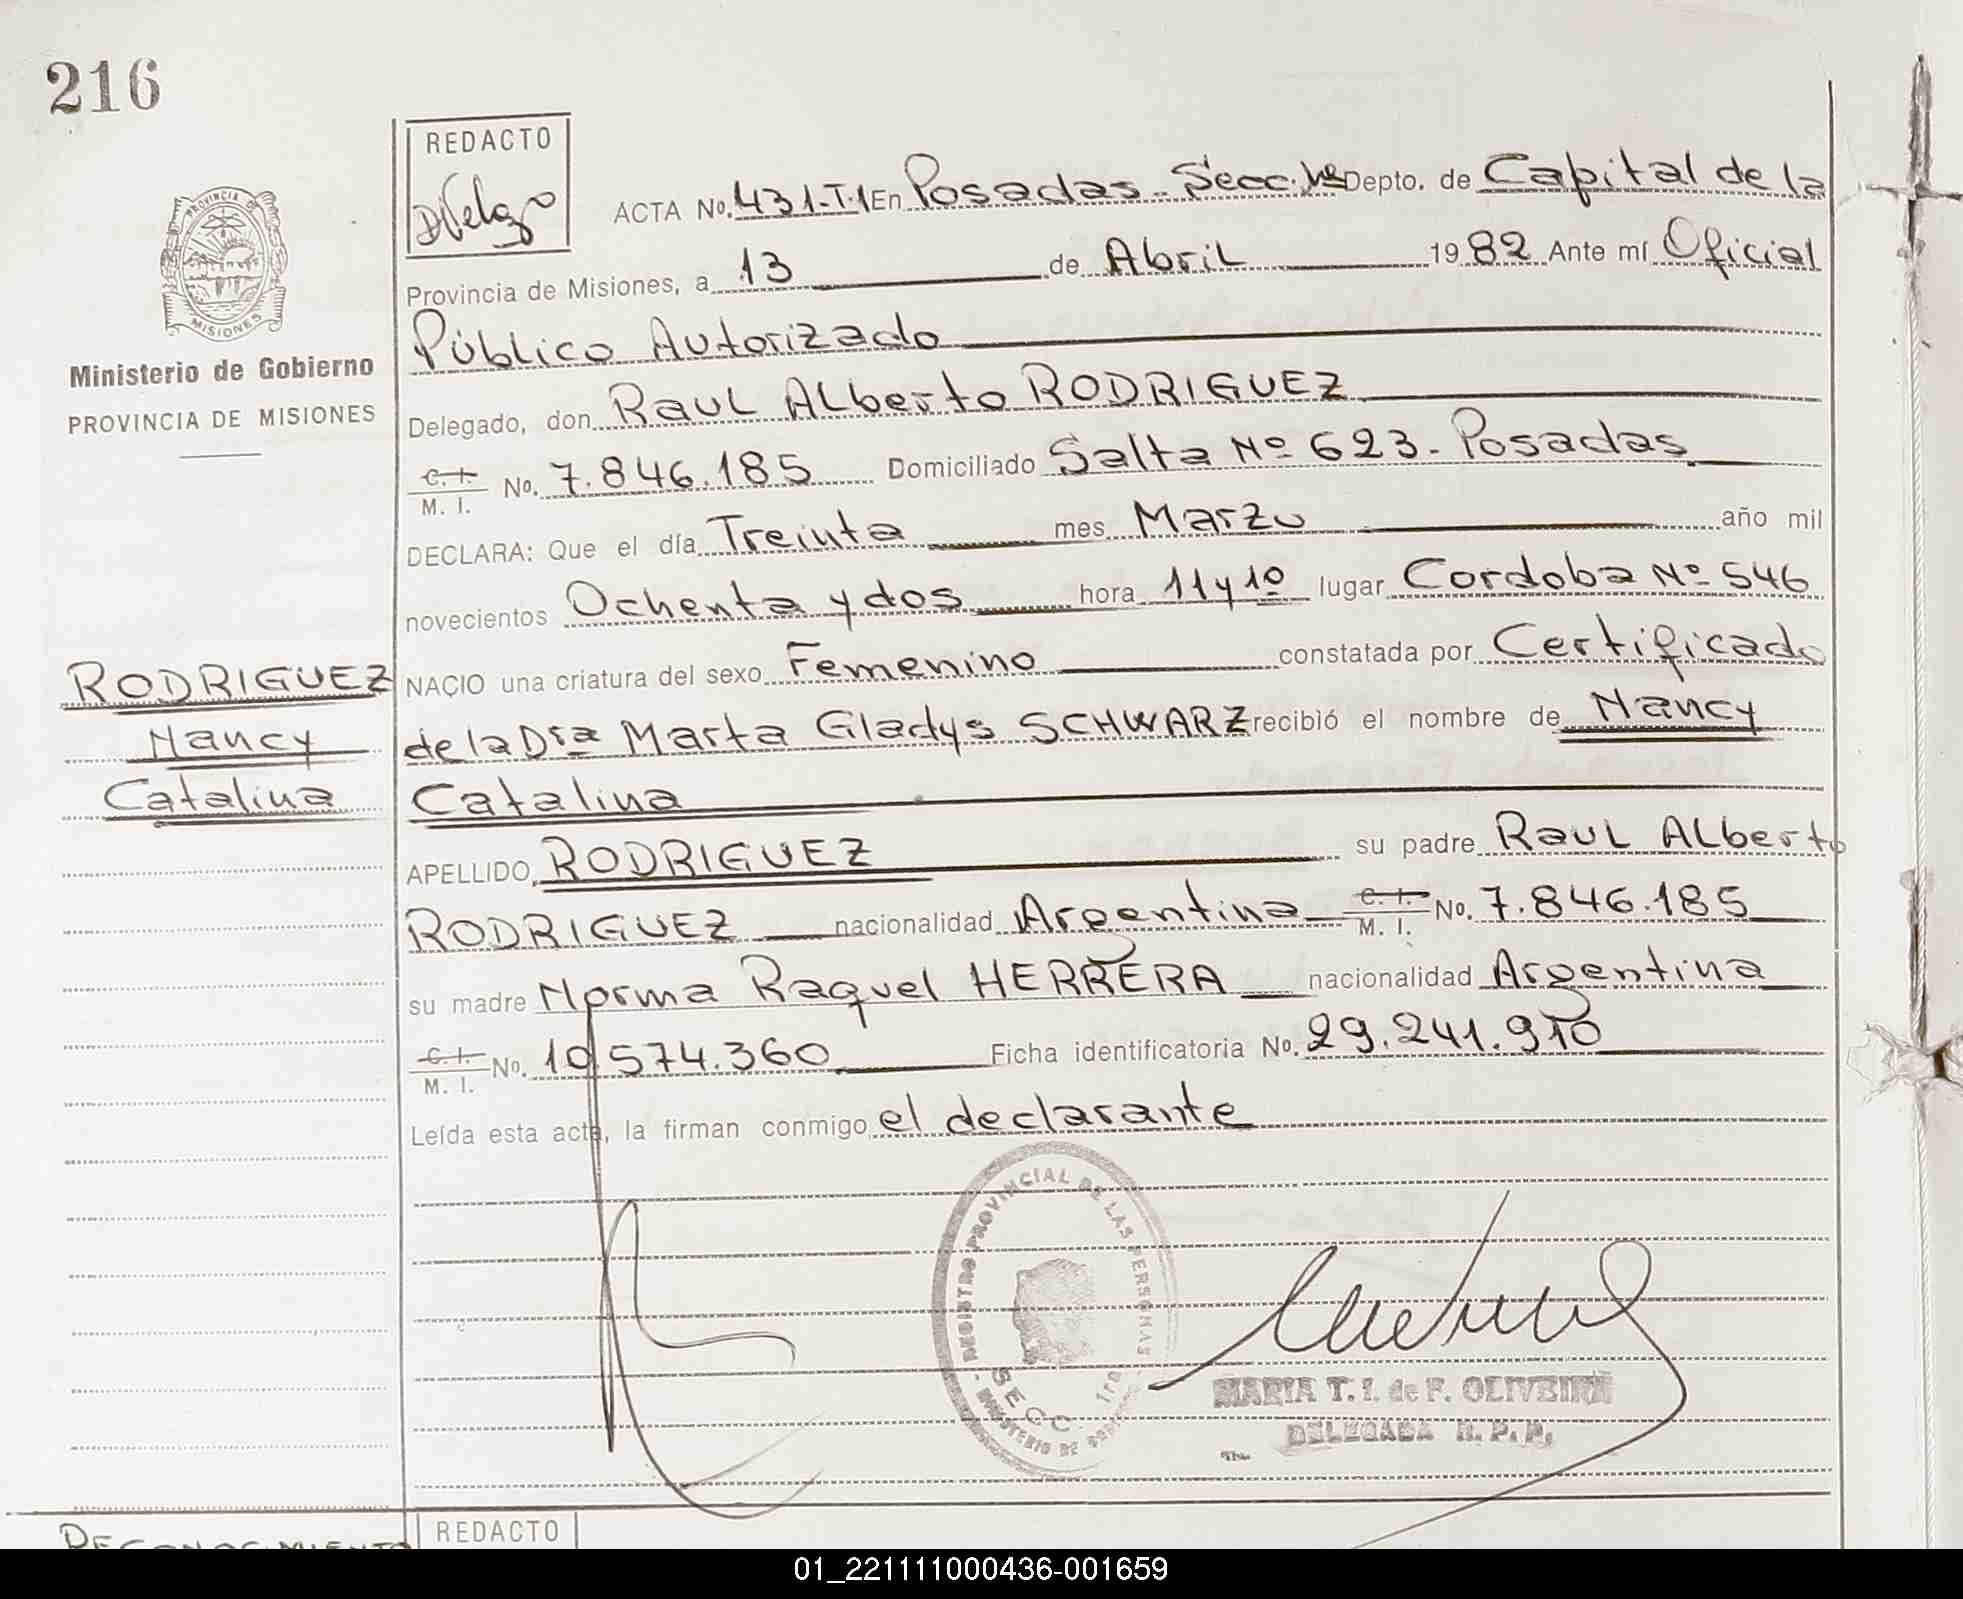 216
REDACTO
ACTA No. 431-T.1 En Posadas Secc. 1ª Depto. de Capital de la
Provincia de Misiones, a 13 de Abril 1982 Ante mí Oficial
Público Autorizado
Delegado, don Raul Alberto RODRIGUEZ
C. I. / M. I. No. 7.846.185 Domiciliado Salta Nº 623 - Posadas
DECLARA: Que el día Treinta mes Marzo año mil
novecientos Ochenta y dos hora 11 y 10 lugar Cordoba Nº 546
NACIO una criatura del sexo Femenino constatada por Certificado
de la Dra Marta Gladys SCHWARZ recibió el nombre de Nancy
Catalina
APELLIDO RODRIGUEZ su padre Raul Alberto
RODRIGUEZ nacionalidad Argentina C. I. / M. I. No. 7.846.185
su madre Norma Raquel HERRERA nacionalidad Argentina
C. I. / M. I. No. 10.574.360 Ficha identificatoria No. 29.241.910
Leída esta acta, la firman conmigo el declarante
PROVINCIA DE MISIONES
Ministerio de Gobierno
PROVINCIA DE MISIONES
RODRIGUEZ
Nancy
Catalina
REGISTRO PROVINCIAL DE LAS PERSONAS
SECC. 1ra
MINISTERIO DE
MARIA T. I. de F. OLIVEIRA
DELEGADA R. P. P.
RECONOCIMIENTO
REDACTO
01_221111000436-001659